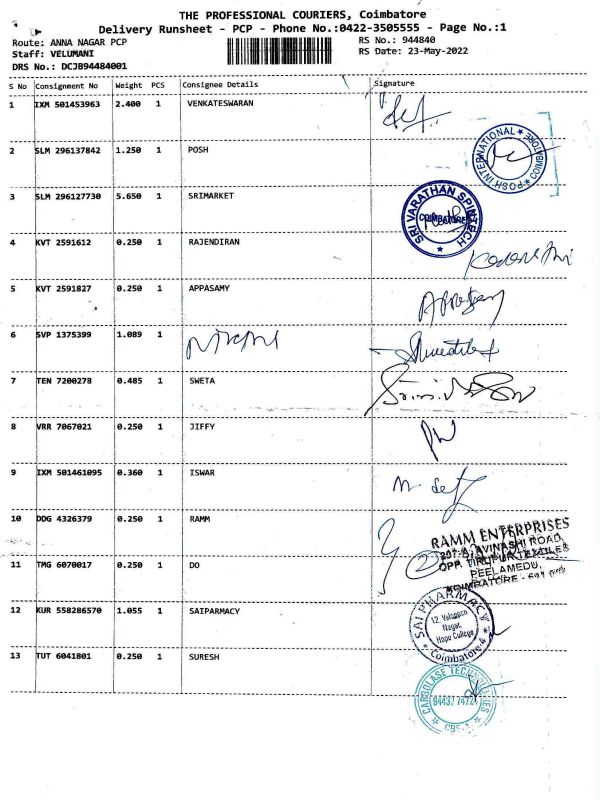 THE PROFESSIONAL COURIERS, Coimbatore
Delivery Runsheet - PCP - Phone No.:0422-3505555 - Page No.:1
Route: ANNA NAGAR PCP RS No.: 944840
Staff: VELUMANI RS Date: 23-May-2022
DRS No.: DCJB94484001
S No Consignment No Weight PCS Consignee Details Signature
1 IXM 501453963 2.400 1 VENKATESWARAN
2 SLM 296137842 1.250 1 POSH
POSH INTERNATIONAL COIMBATORE
3 SLM 296127730 5.650 1 SRIMARKET
SRI VARATHAN SPINTECH
COIMBATORE
4 KVT 2591612 0.250 1 RAJENDIRAN
5 KVT 2591827 0.250 1 APPASAMY
6 SVP 1375399 1.089 1
7 TEN 7200278 0.485 1 SWETA
8 VRR 7067021 0.250 1 JIFFY
9 IXM 501461095 0.360 1 ISWAR
10 DDG 4326379 0.250 1 RAMM
RAMM ENTERPRISES
AVINASHI ROAD,
OPP. TIRUPUR TEXTILES
PEELAMEDU,
COIMBATORE -
11 TMG 6070017 0.250 1 DO
12 KUR 558286570 1.055 1 SAIPARMACY
SAI PHARMACY
Nagar,
Hope College
Coimbatore-4
13 TUT 6041801 0.250 1 SURESH
CARBOLASE
94437 74727
CBE-1